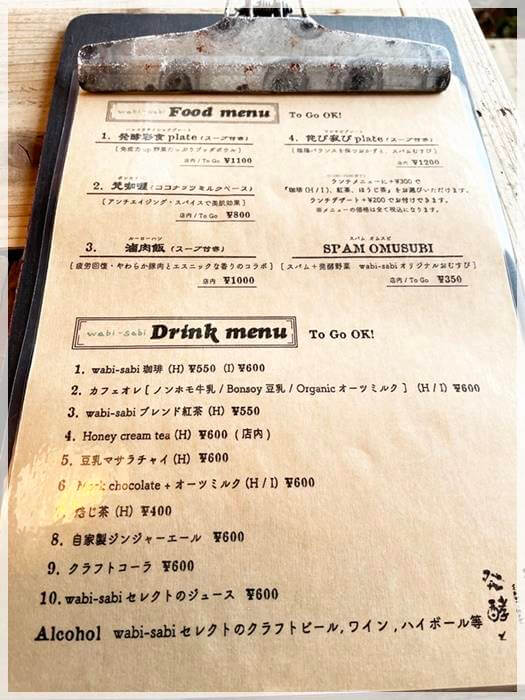 wabi-sabi Food menu To Go OK!
1. 発酵彩食 plate (スープ付き)
[免疫力up 野菜たっぷりブッダボウル]
店内 / To Go ¥1100
4. 侘び寂び plate (スープ付き)
店内 / To Go ¥1200
2. 梵咖喱 (ココナッツミルクベース)
[アンチエイジング・スパイスで美肌効果]
店内 / To Go ¥800
ランチメニューに+¥300で
「珈琲 (H / I)、紅茶、ほうじ茶」をお選びいただけます。
ランチデザート+¥200でお付けできます。
※メニューの価格は全て税込になります。
ルーローハン
3. 滷肉飯 (スープ付き)
[疲労回復・やわらか豚肉とエスニックな香りのコラボ]
店内 ¥1000
スパム オムスビ
SPAM OMUSUBI
[スパム+発酵野菜 wabi-sabiオリジナルおむすび]
店内 / To Go ¥350
wabi-sabi Drink menu To Go OK!
1. wabi-sabi 珈琲 (H) ¥550 (I) ¥600
2. カフェオレ [ノンホモ牛乳 / Bonsoy 豆乳 / Organic オーツミルク] (H / I) ¥600
3. wabi-sabi ブレンド紅茶 (H) ¥550
4. Honey cream tea (H) ¥600 (店内)
5. 豆乳マサラチャイ (H) ¥600
6 chocolate + オーツミルク (H / I) ¥600
焙じ茶 (H) ¥400
8. 自家製ジンジャーエール ¥600
9. クラフトコーラ ¥600
10. wabi-sabi セレクトのジュース ¥600
Alcohol wabi-sabi セレクトのクラフトビール, ワイン, ハイボール等
発酵と